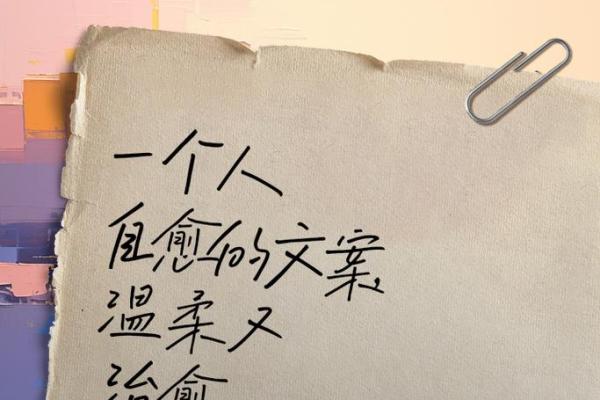 一个人
自愈的文案,
温柔又
治愈